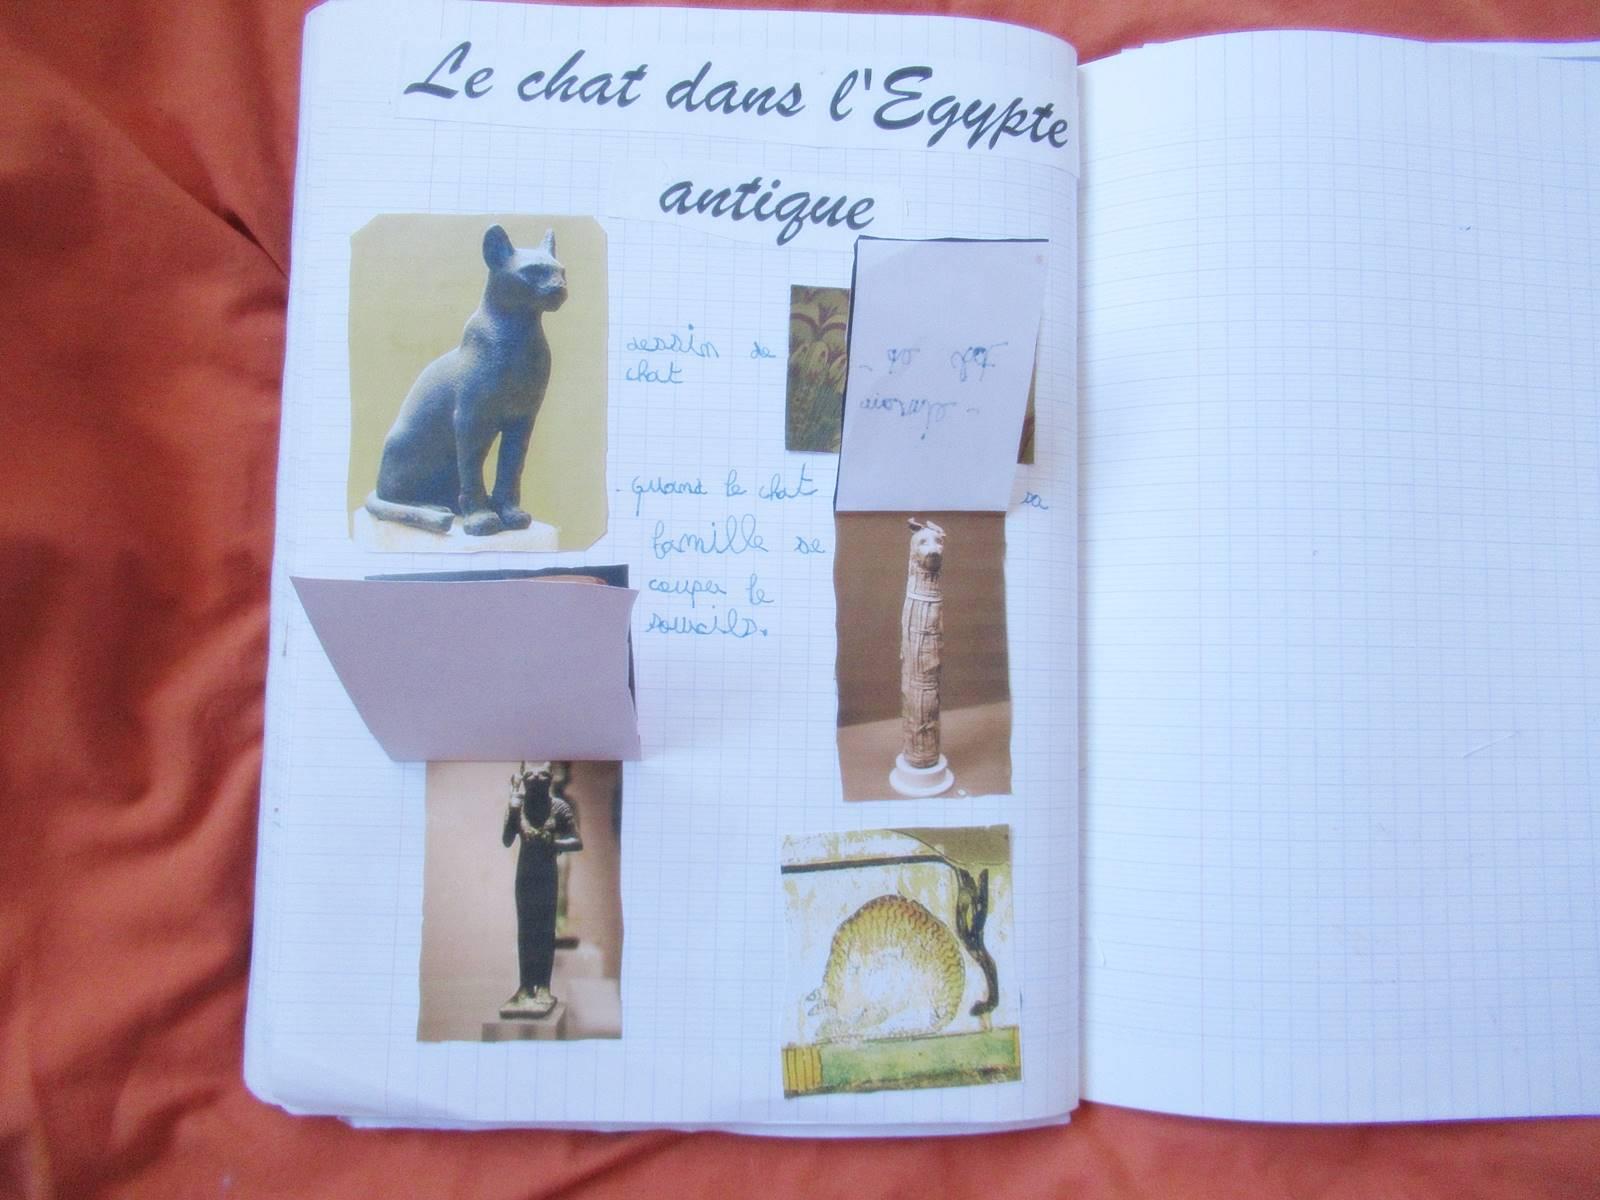 Le chat dans l'Egypte
antique
dessin de
chat
- quand le chat
sa
famille se
couper le
sourcils.